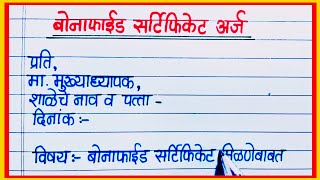 बोनाफाईड सर्टिफिकेट अर्ज
प्रति,
मा. मुख्याध्यापक,
शाळेचे नाव व पत्ता -
दिनांक:-
विषय:- बोनाफाईड सर्टिफिकेट मिळणेबाबत